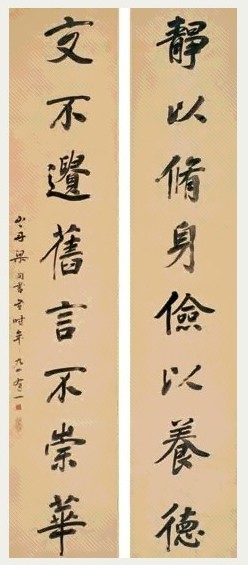 靜以脩身儉以養德
交不遺舊言不崇華
山舟梁同書書時年九十有一